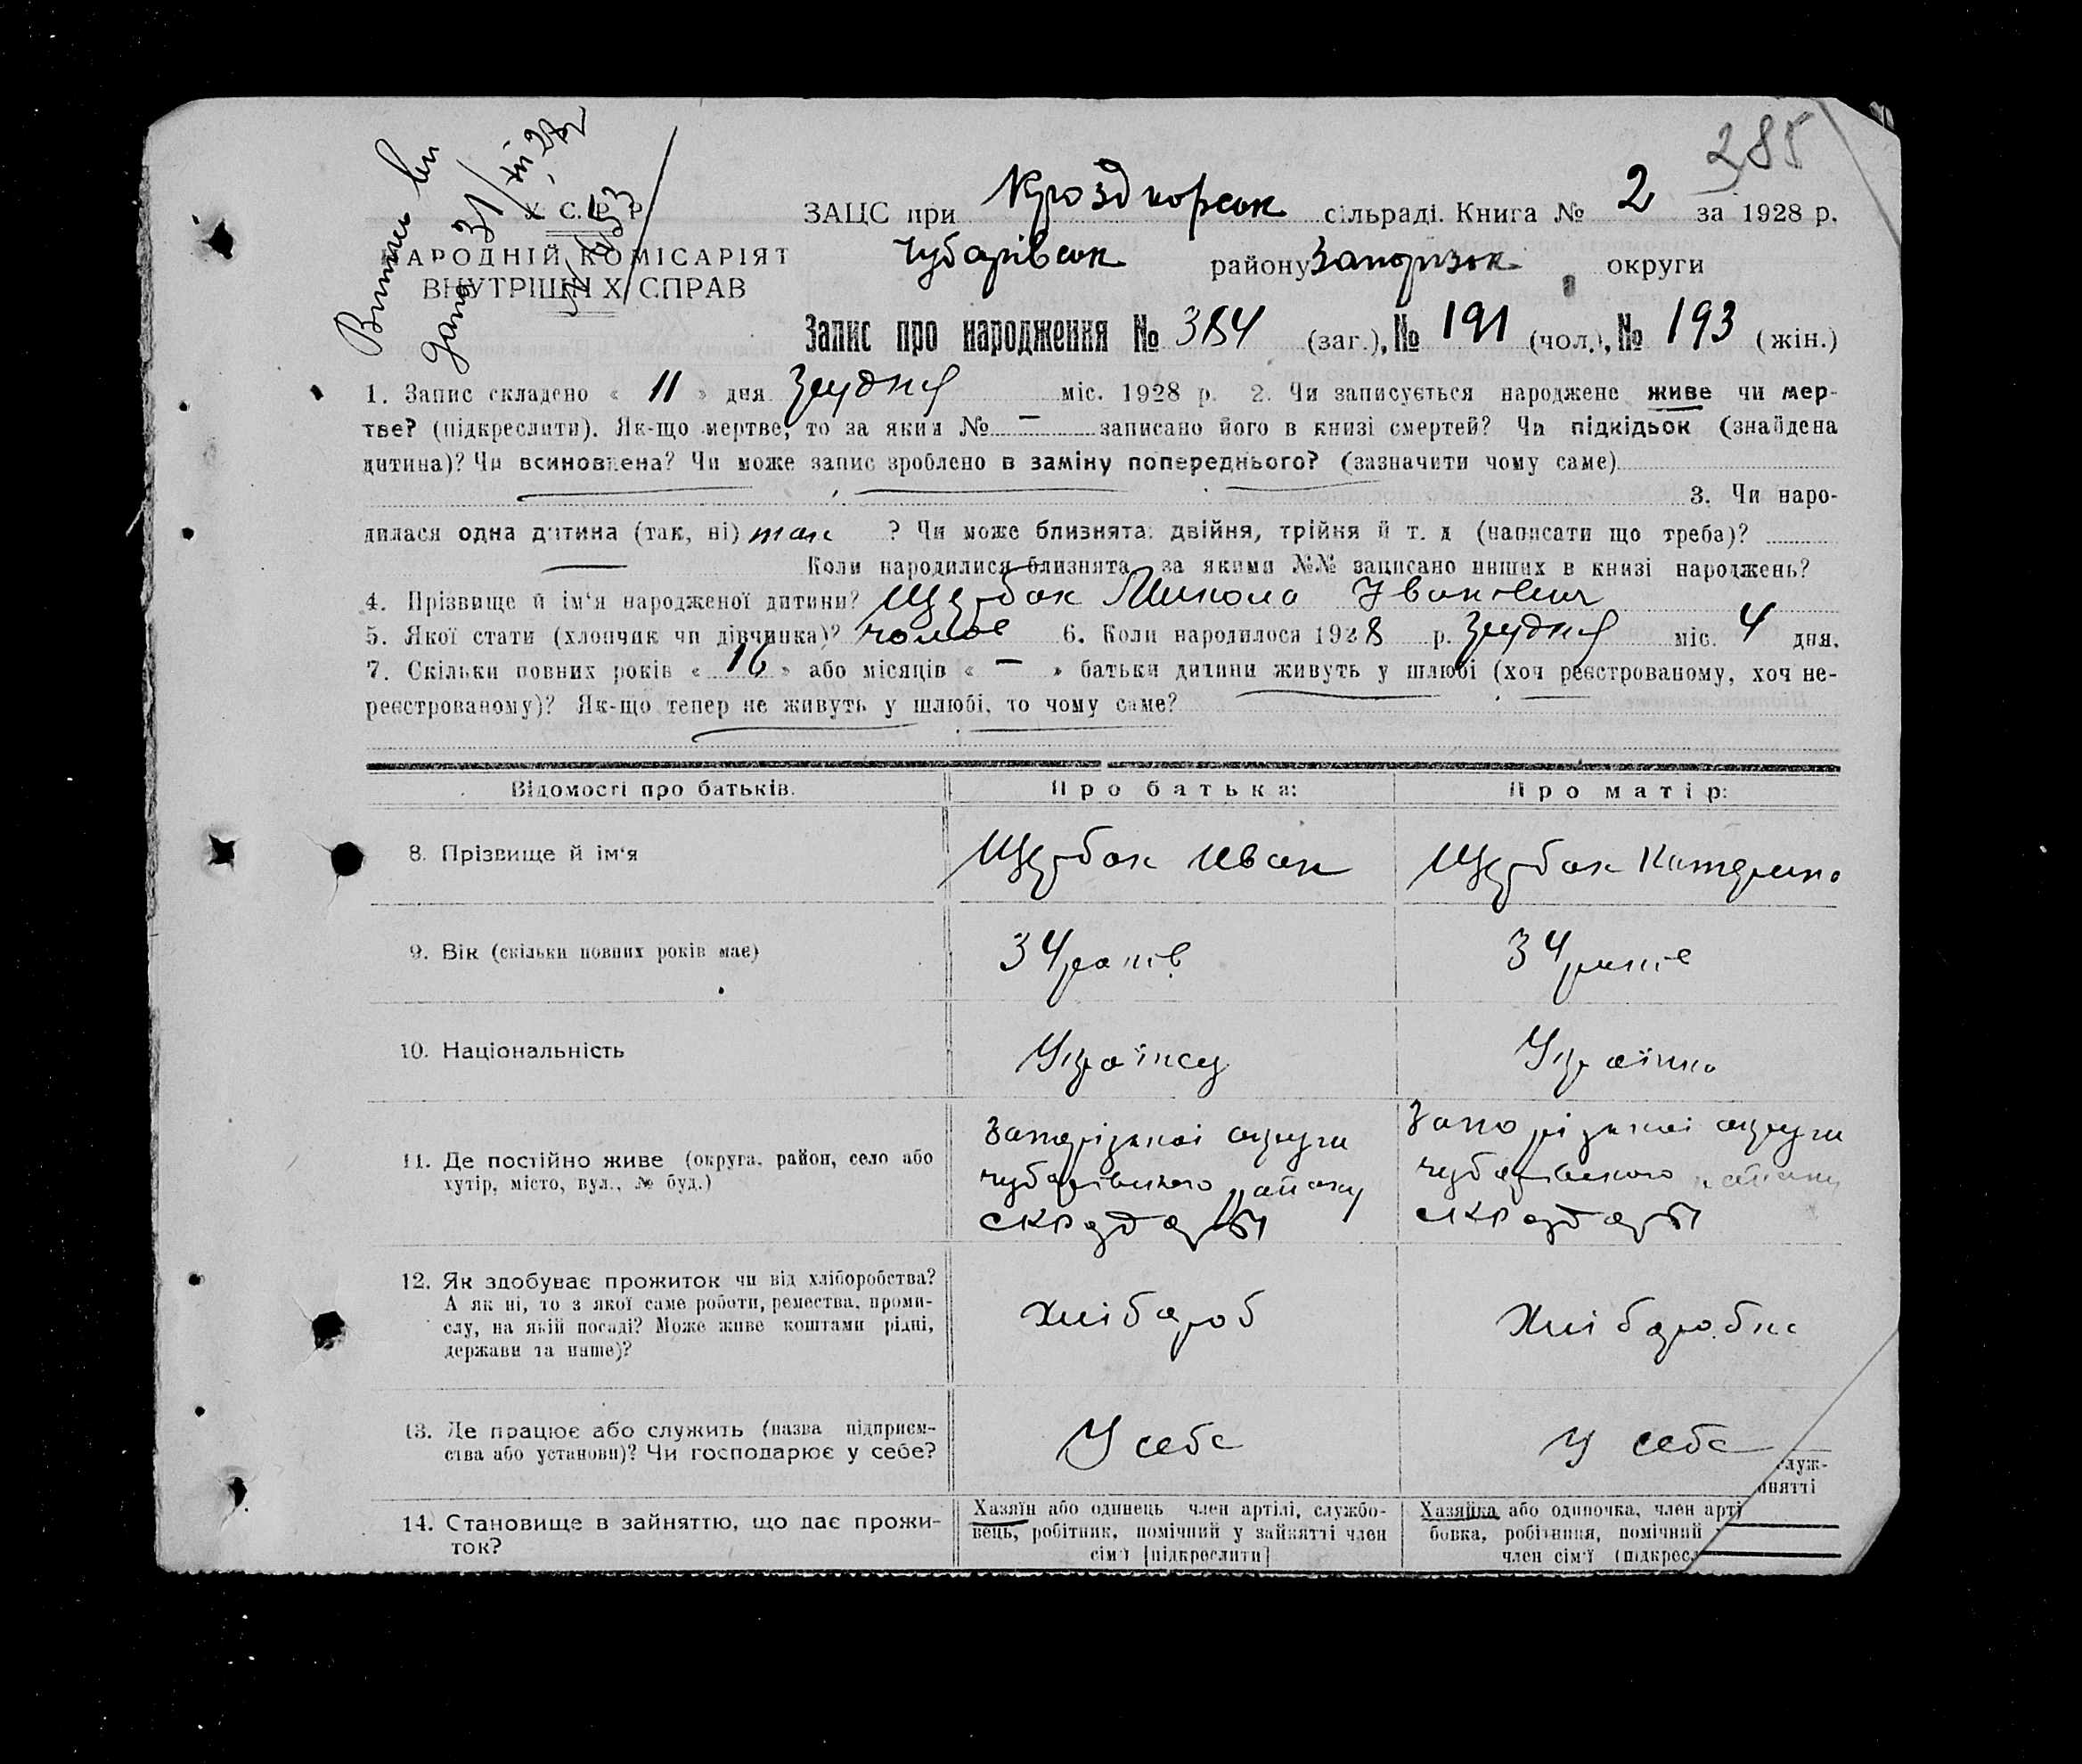 285
Витяг ви
дано 31/III 27
У. С. Р. Р.
НАРОДНІЙ КОМІСАРІЯТ
ВНУТРІШНІХ СПРАВ
ЗАЦС при сільраді. Книга № 2 за 1928 р.
Чубарівськ району Запоризьк округи
Запис про народження № 384 (заг.), № 191 (чол.), № 193 (жін.)
1. Запис складено « 11 » дня Грудня міс. 1928 р. 2. Чи записується народжене живе чи мер-
тве? (підкреслити). Як-що мертве, то за яким № — записано його в книзі смертей? Чи підкідьок (знайдена
дитина)? Чи всиновлена? Чи може запис зроблено в заміну попереднього? (зазначити чому саме)
3. Чи наро-
дилася одна дитина (так, ні) так ? Чи може близнята: двійня, трійня й т. д (написати що треба)?
Коли народилися близнята, за якими №№ записано инших в книзі народжень?
4. Прізвище й ім'я народженої дитини? Щербак Микола Іванович
5. Якої стати (хлопчик чи дівчинка)? чолов 6. Коли народилося 1928 р. Грудня міс. 4 дня.
7. Скільки повних років « 16 » або місяців « — » батьки дитини живуть у шлюбі (хоч реєстрованому, хоч не-
реєстрованому)? Як-що тепер не живуть у шлюбі, то чому саме?
Відомості про батьків. Про батька: Про матір:
8. Прізвище й ім'я Щербак Иван Щербак Катерина
9. Вік (скільки повних років має) 34 років 34 років
10. Національність Українец Українка
11. Де постійно живе (округа, район, село або
хутір, місто, вул., № буд.)
Запорізької округи
Чубарівського району
Запорізької округи
Чубарівського району
12. Як здобуває прожиток чи від хліборобства?
А як ні, то з якої саме роботи, ремества, проми-
слу, на якій посаді? Може живе коштами рідні,
держави та инше)?
Хлібороб Хліборобка
13. Де працює або служить (назва підприєм-
ства або установи)? Чи господарює у себе?
У себе У себе
луж-
йнятті
14. Становище в зайняттю, що дає прожи-
ток?
Хазяїн або одинець член артілі, службо-
вець, робітник, помічний у зайнятті член
сім'ї [підкреслити]
Хазяйка або одиночка, член арті
бовка, робітниця, помічний
член сім'ї (підкресл